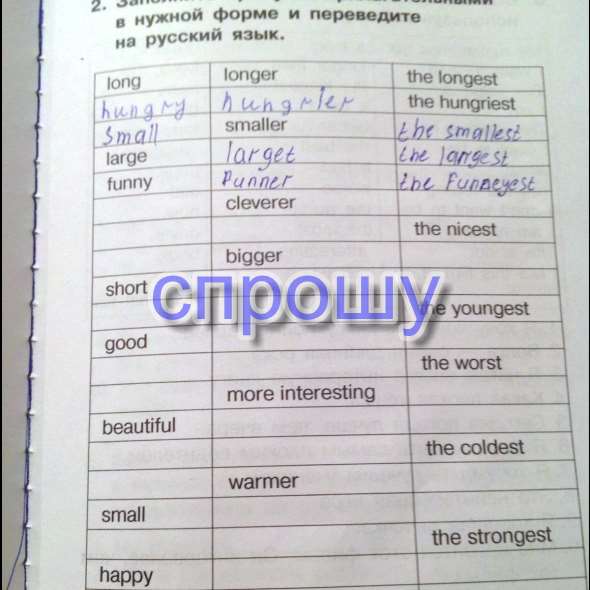 2. Заполните
в нужной форме и переведите
на русский язык.
long longer the longest
hungry hungrier the hungriest
small smaller the smallest
large larget the largest
funny Punner the Funneyest
cleverer
the nicest
bigger
short
спрошу
the youngest
good
the worst
more interesting
beautiful
the coldest
warmer
small
the strongest
happy